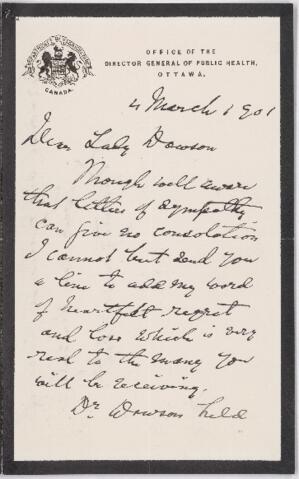 DEPARTMENT OF AGRICULTURE
CANADA.
OFFICE OF THE
DIRECTOR GENERAL OF PUBLIC HEALTH,
OTTAWA.
4 March 1901
Dear Lady Dawson
Though well aware
that letters of sympathy
can give no consolation
I cannot but send you
a line to add my word
of heartfelt regret
and loss which is very
real to the many you
will be receiving.
Dr Dawson held